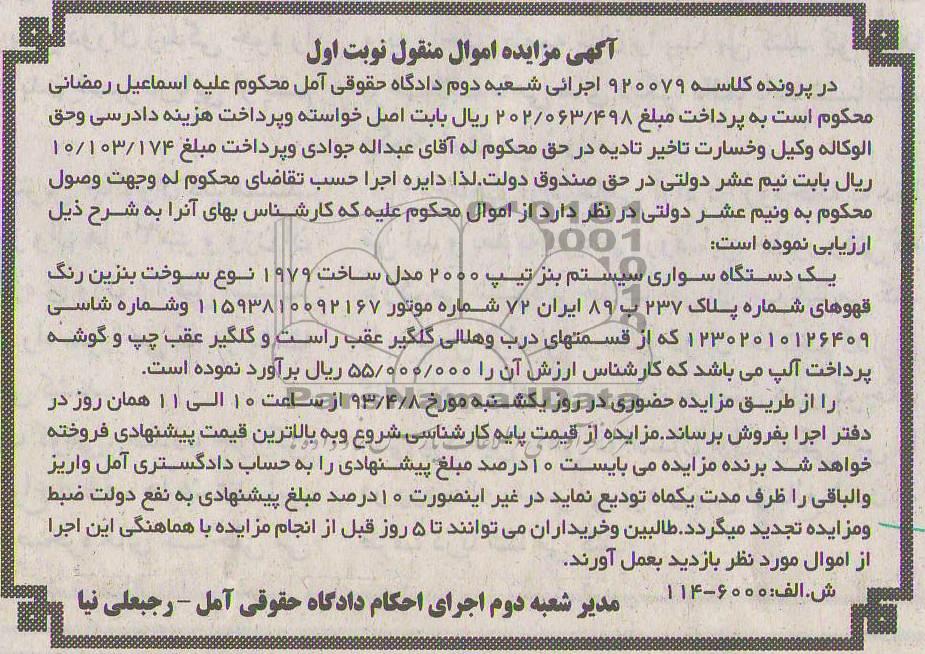 آگهی مزایده اموال منقول نوبت اول
در پرونده کلاسه ۹۲۰۰۷۹ اجرائی شعبه دوم دادگاه حقوقی آمل محکوم علیه اسماعیل رمضانی
محکوم است به پرداخت مبلغ ۲۰۲/۰۶۳/۴۹۸ ریال بابت اصل خواسته وپرداخت هزینه دادرسی وحق
الوکاله وکیل وخسارت تاخیر تادیه در حق محکوم له آقای عبداله جوادی وپرداخت مبلغ ۱۰/۱۰۳/۱۷۴
ریال بابت نیم عشر دولتی در حق صندوق دولت.لذا دایره اجرا حسب تقاضای محکوم له وجهت وصول
محکوم به ونیم عشر دولتی در نظر دارد از اموال محکوم علیه که کارشناس بهای آنرا به شرح ذیل
ارزیابی نموده است:
یک دستگاه سواری سیستم بنز تیپ ۲۰۰۰ مدل ساخت ۱۹۷۹ نوع سوخت بنزین رنگ
قهوهای شماره پلاک ۲۳۷ ب ۸۹ ایران ۷۲ شماره موتور ۱۱۵۹۳۸۱۰۰۹۲۱۶۷ وشماره شاسی
۱۲۳۰۲۰۱۰۱۲۶۴۰۹ که از قسمتهای درب وهلالی گلگیر عقب راست و گلگیر عقب چپ و گوشه
پرداخت آلپ می باشد که کارشناس ارزش آن را ۵۵/۰۰۰/۰۰۰ ریال برآورد نموده است.
را از طریق مزایده حضوری در روز یکشنبه مورخ ۹۳/۴/۸ از ساعت ۱۰ الی ۱۱ همان روز در
دفتر اجرا بفروش برساند.مزایده از قیمت پایه کارشناسی شروع وبه بالاترین قیمت پیشنهادی فروخته
خواهد شد برنده مزایده می بایست ۱۰درصد مبلغ پیشنهادی را به حساب دادگستری آمل واریز
والباقی را ظرف مدت یکماه تودیع نماید در غیر اینصورت ۱۰درصد مبلغ پیشنهادی به نفع دولت ضبط
ومزایده تجدید میگردد.طالبین وخریداران می توانند تا ۵ روز قبل از انجام مزایده با هماهنگی این اجرا
از اموال مورد نظر بازدید بعمل آورند.
ش.الف:۶۰۰۰-۱۱۴
مدیر شعبه دوم اجرای احکام دادگاه حقوقی آمل - رجبعلی نیا
ParsNamadData